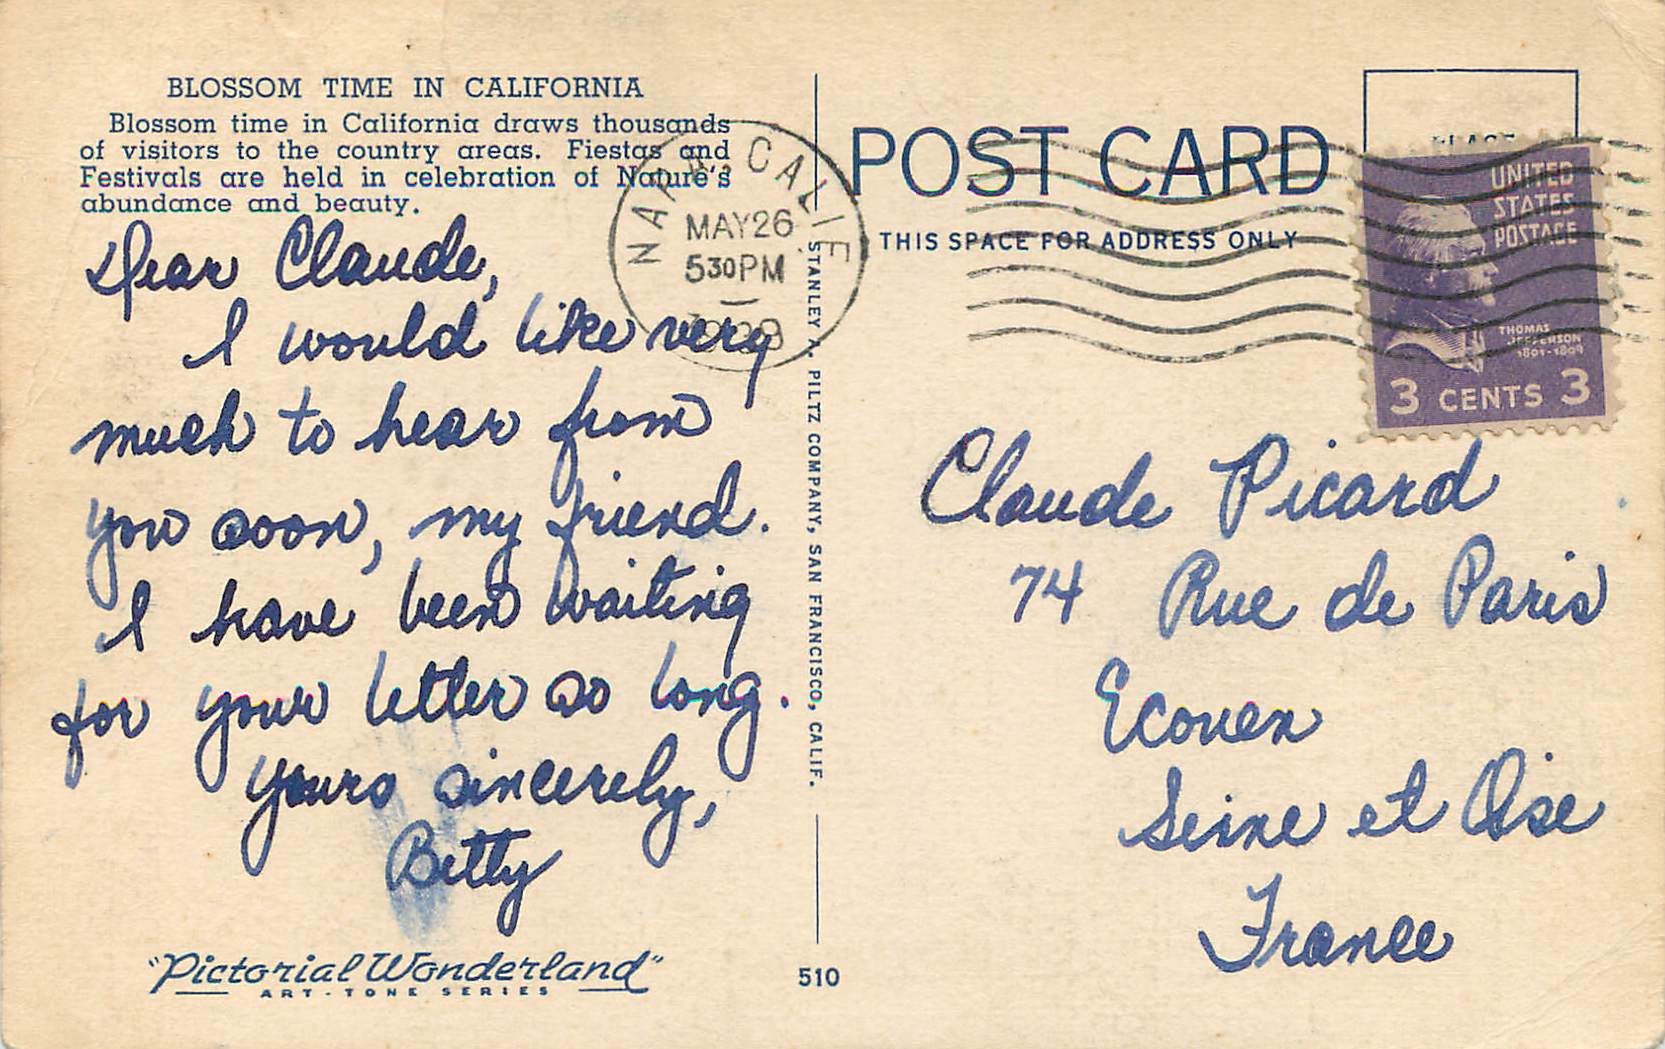 BLOSSOM TIME IN CALIFORNIA
Blossom time in California draws thousands
of visitors to the country areas. Fiestas and
Festivals are held in celebration of Nature's
abundance and beauty.
Dear Claude,
I would like very
much to hear from
you soon, my friend.
I have been waiting
for your letter so long.
Yours sincerely,
Betty
"Pictorial Wonderland"
ART-TONE SERIES
NAPA, CALIF.
MAY 26
530PM
STANLEY A. PILTZ COMPANY, SAN FRANCISCO, CALIF.
510
POST CARD
THIS SPACE FOR ADDRESS ONLY
PLACE
UNITED
STATES
POSTAGE
THOMAS
JEFFERSON
1801-1809
3 CENTS 3
Claude Picard
74 Rue de Paris
Ecouen
Seine et Oise
France